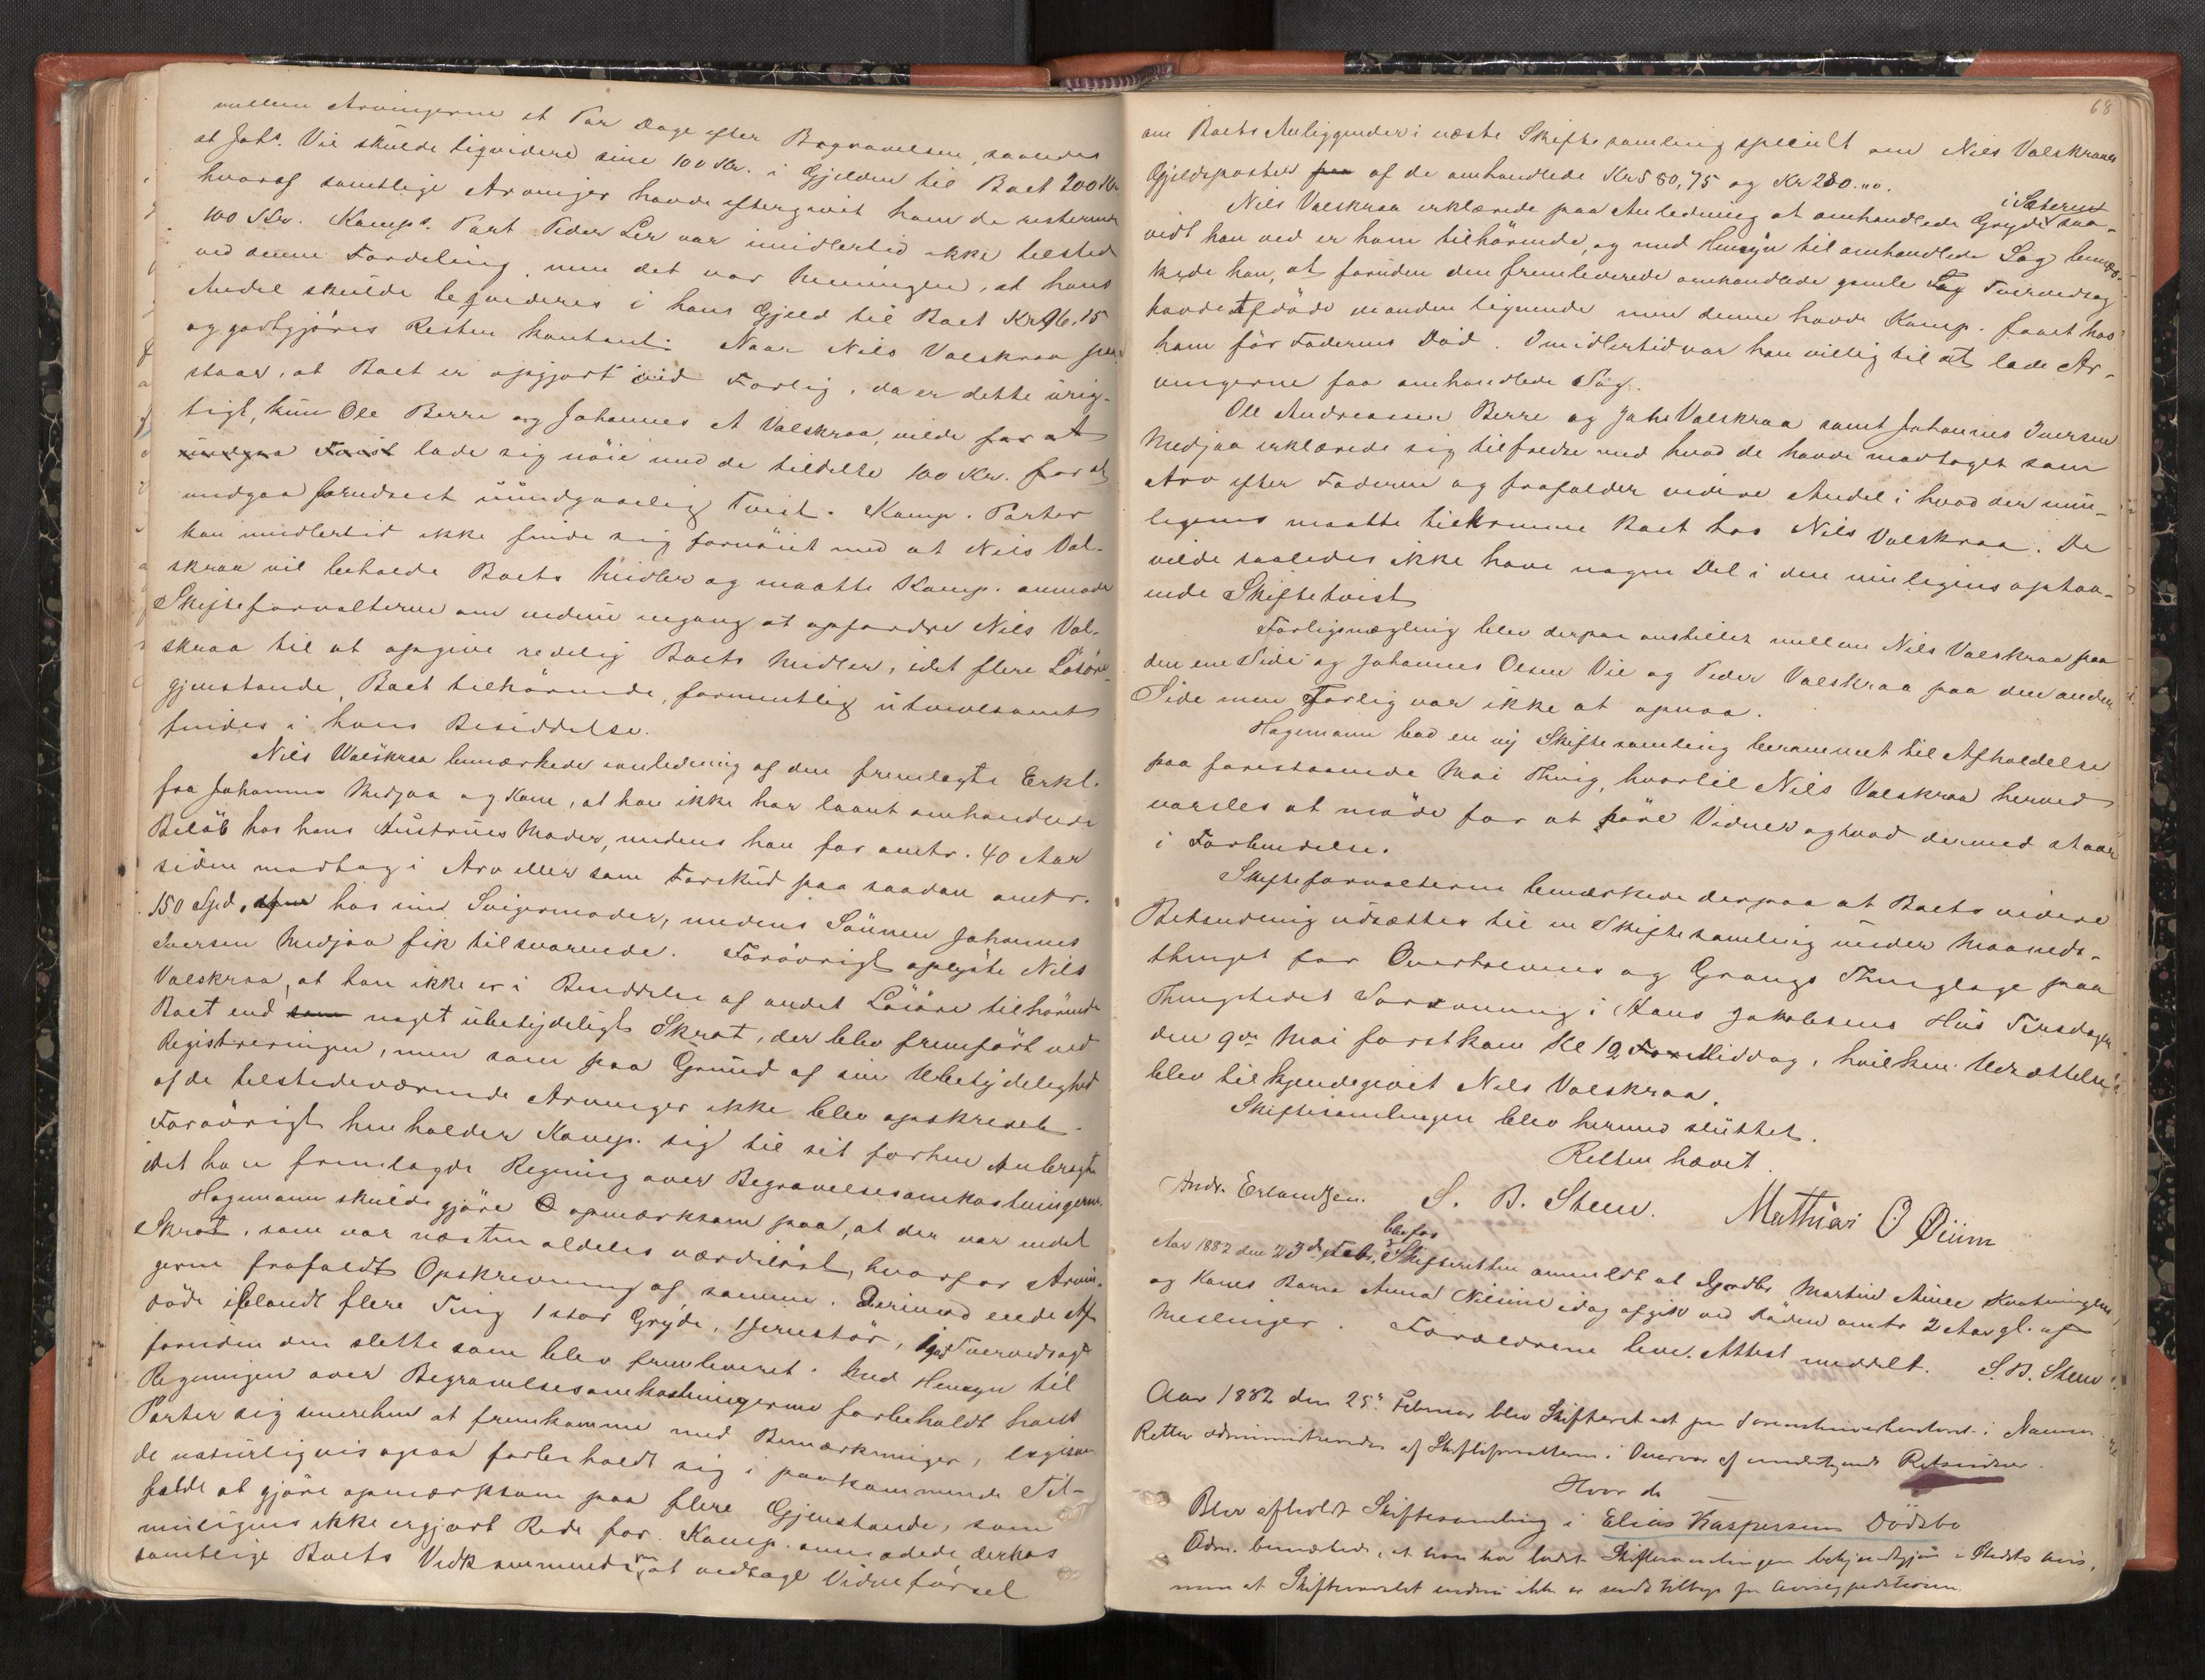 mellem Arvingerne et Par Dage efter Begravelsen, saaledes
at Johs. Vie skulde liqvidere sine 100 Kr. i Gjelden til Boet 200 Kr
hvoraf samtlige Arvinger havde eftergivet ham de resterende
100 Kr. Komps. Part Peder Ler var imidlertid ikke tilsted
ved denne Fordeling, men det var Meningen, at hans
Andel skulde liqvideres i hans Gjeld til Boet Kr 96.15
og godtgjøres Resten kontant. Naar Nils Valskraa paa-
staar, at Boet er opgjort ved Forlig, da er dette urig-
tigt, kun Ole Berre og Johannes A Valskraa, vilde for at
undgaa Tvist lade sig nöie med de tildelte 100 Kr. for at
undgaa forudseet uundgaaelig Tvist. Komp. Parter
kan imidlertid ikke finde sig fornöiet med at Nils Val-
skraa vil beholde Boets Midler og maatte Komp. anmode
Skifteforvalteren om endnu engang at opfordre Nils Val-
skraa til at opgive redelig Boets Midler, idet flere Lösöre-
gjenstande, Boet tilhörende, formentlig utvivlsomt
findes i hans Besiddelse.
Nils Walskraa bemærkede i anledning af den fremlagte Erkl.
fra Johannes Medjaa og Kone, at han ikke har laant omhandlede
Belöb hos hans Hustrues Moder, medens han for omtr. 40 Aar
siden modtog i Arv eller som Forskud paa saadan omtr.
150 Spd, hos sin Svigermoder, medens Sönnen Johannes
Iversen Medjaa fik tilsvarende. Forövrigt oplyste Nils
Valskraa, at han ikke er i Besiddelse af andet Lösöre tilhörende
Boet end som noget ubetydeligt Skrot, der blev fremfört ved
Registreringen, men som paa Grund af sin Ubetydelighed
af de tilstedeværende Arvinger ikke blev opskrevet.
Forövrigt henholder Komp. sig til sit forhen Anbragte
idet han fremlagde Regning over Begravelsesomkostningerne.
Hagemann skulde gjöre opmærksom paa, at der var endel
Skrot, som var næsten aldeles værdilöst, hvorfor Arvin-
gerne frafaldt Opskrivning af samme. Derimod eiede Af-
döde iblandt flere Ting 1 stor Gryde, 1 Jernstör, 1 god Tvervedsag
foruden den slette som blev fremleveret. Med Hensyn til
Regningen over Begravelsesomkostningerne forbeholdt hans
Parter sig senerehen at fremkomme med Bemærkninger, ligesom
de naturligvis ogsaa forbeholdt sig i paakommende Til-
fælde at gjöre opmærksom paa flere Gjenstande, som
muligens ikke er gjort Rede for. Komp. anmodede derhos
samtlige Boets Vedkommende om at vedtage Vidneförsel
68
om Boets Anliggender i næste Skiftesamling specielt om Nils Valskraaes
Gjeldsposter paa af de omhandlede Kr 580,75 og Kr 280.00.
i Sæteren
Nils Valskraa erklærede paa Anledning at omhandlede Gryde saa-
vidt han ved er ham tilhörende, og med Hensyn til omhandlede Sag bemær-
kede han, at foruden den fremleverede omhandlede gamle Sag Tvervedsag
havde Afdöde en anden lignende men denne havde Komp. faaet hos
ham för Faderens Död. Imidlertid var han villig til at lade Ar-
vingerne faa omhandlede Sag.
Ole Andreassen Berre og Johs Valskraa samt Johannes Iversen
Medjaa erklærede sig tilfredse med hvad de havde modtaget som
Arv efter Faderen og frafalder videre Andel i hvad der mu-
ligens maatte tilkomme Boet hos Nils Valskraa. De
vilde saaledes ikke have nogen Del i den muligens opstaa-
ende Skiftetvist
Forligsmægling blev derpaa anstillet mellem Nils Valskraa paa
den ene Side og Johannes Olsen Vie og Peder Valskraa paa den anden
Side men Forlig var ikke at opnaa.
Hagemann bad en ny Skiftesamling berammet til Afholdelse
paa forestaaende Mai Thing, hvortil Nils Valskraa herved
varsles at möde for at före Vidner og hvad dermed staar
i Forbindelse.
Skifteforvalteren bemærkede derpaa at Boets videre
Behandling udsættes til en Skiftesamling under Maaneds-
thinget for Overhalvens og Grongs Thinglage paa
Thingstedet i Hans Jakobsens Hus Tirsdagen
den 9de Mai forstkom Kl 12 Middag, hvilken Udsættelse
blev tilkjendegivet Nils Valskraa.
Skiftesamlingen blev hermed sluttet.
Retten hævet.
Andr. Erlandsen. S. B. Steen. Mathias O Øium
blev for
Aar 1882 den 23de Febr. Skifteretten anmeldt at Gaardbr Martin
og Kones Barn Anna Nilsine idag afgik ved Döden omtr 2 Aar gl. af
Meslinger. Forældrene leve. Attest meddelt. S. B. Steen
Aar 1882 den 25de Februar blev Skifteret sat paa Sorenskriverkontoret i Namsos
Retten administreredes af Skifteforvalteren i Overvær af undertegnede Retsvidner.
Hvor da
Blev afholdt Skiftesamling i Elias Kaspersens Dödsbo
Adm. bemærkede, at han har ladet Skiftesamlingen bekjendtgjöre i Stedets Avis,
men at Skiftevarslet endnu ikke er sendt tilbage fra Avisexpeditionen.